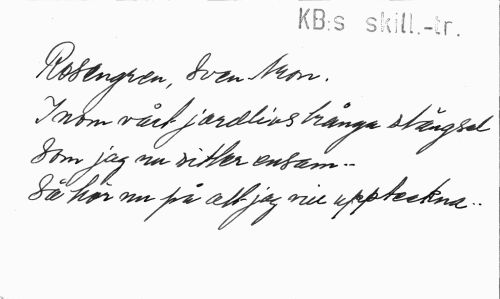 KB:s skill.-tr.
Rosengren, Sven Aron.
Inom vårt jordlivs trånga stängsel
Som jag nu sitter ensam..
Så hör nu på allt jag vill uppteckna..